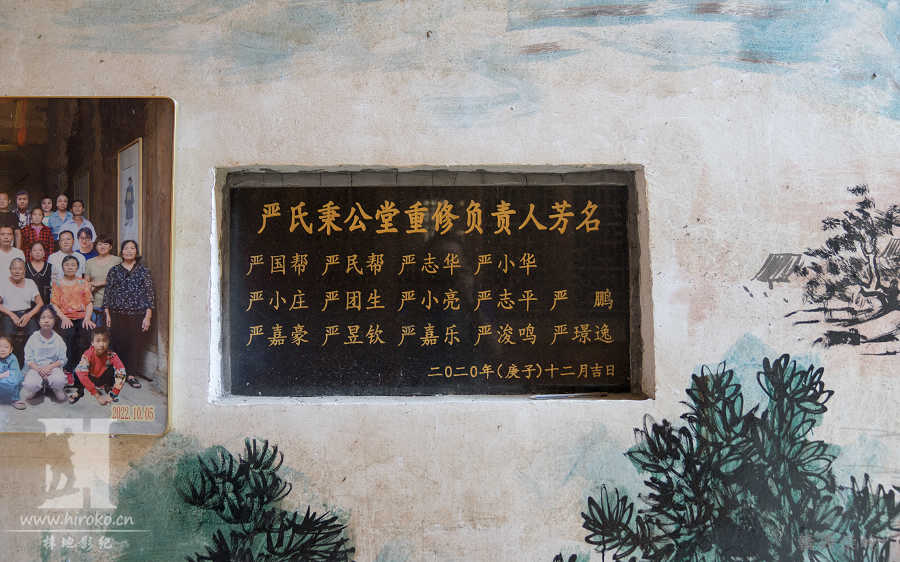 严氏秉公堂重修负责人芳名
严国帮 严民帮 严志华 严小华
严小庄 严团生 严小亮 严志平 严 鹏
严嘉豪 严昱钦 严嘉乐 严浚鸣 严璟逸
二〇二〇年(庚子)十二月吉日
2022.10.05
www.hiroko.cn